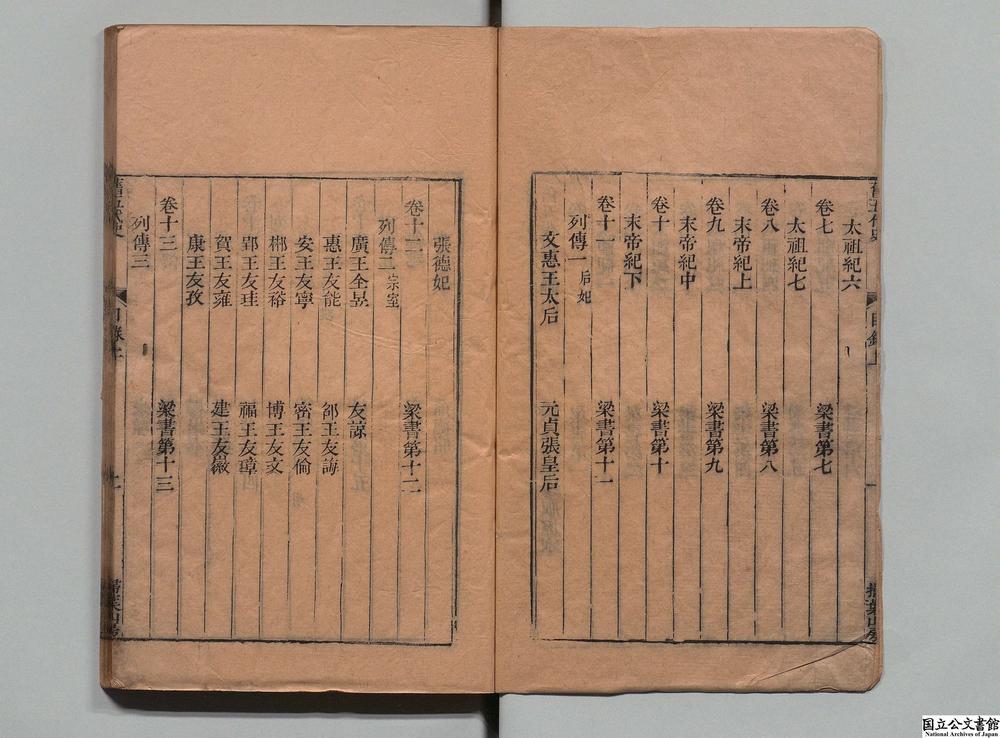 太祖紀六
卷七 梁書第七
太祖紀七
卷八 梁書第八
末帝紀上
卷九 梁書第九
末帝紀中
卷十 梁書第十
末帝紀下
卷十一 梁書第十一
列傳一 后妃
文惠王太后 元貞張皇后
張德妃
卷十二 梁書第十二
列傳二 宗室
廣王全昱 友諒
惠王友能 邵王友誨
安王友寧 密王友倫
郴王友裕 博王友文
郢王友珪 福王友璋
賀王友雍 建王友徽
康王友孜
卷十三 梁書第十三
列傳三
舊五代史
目錄上
掃葉山房
国立公文書館
National Archives of Japan